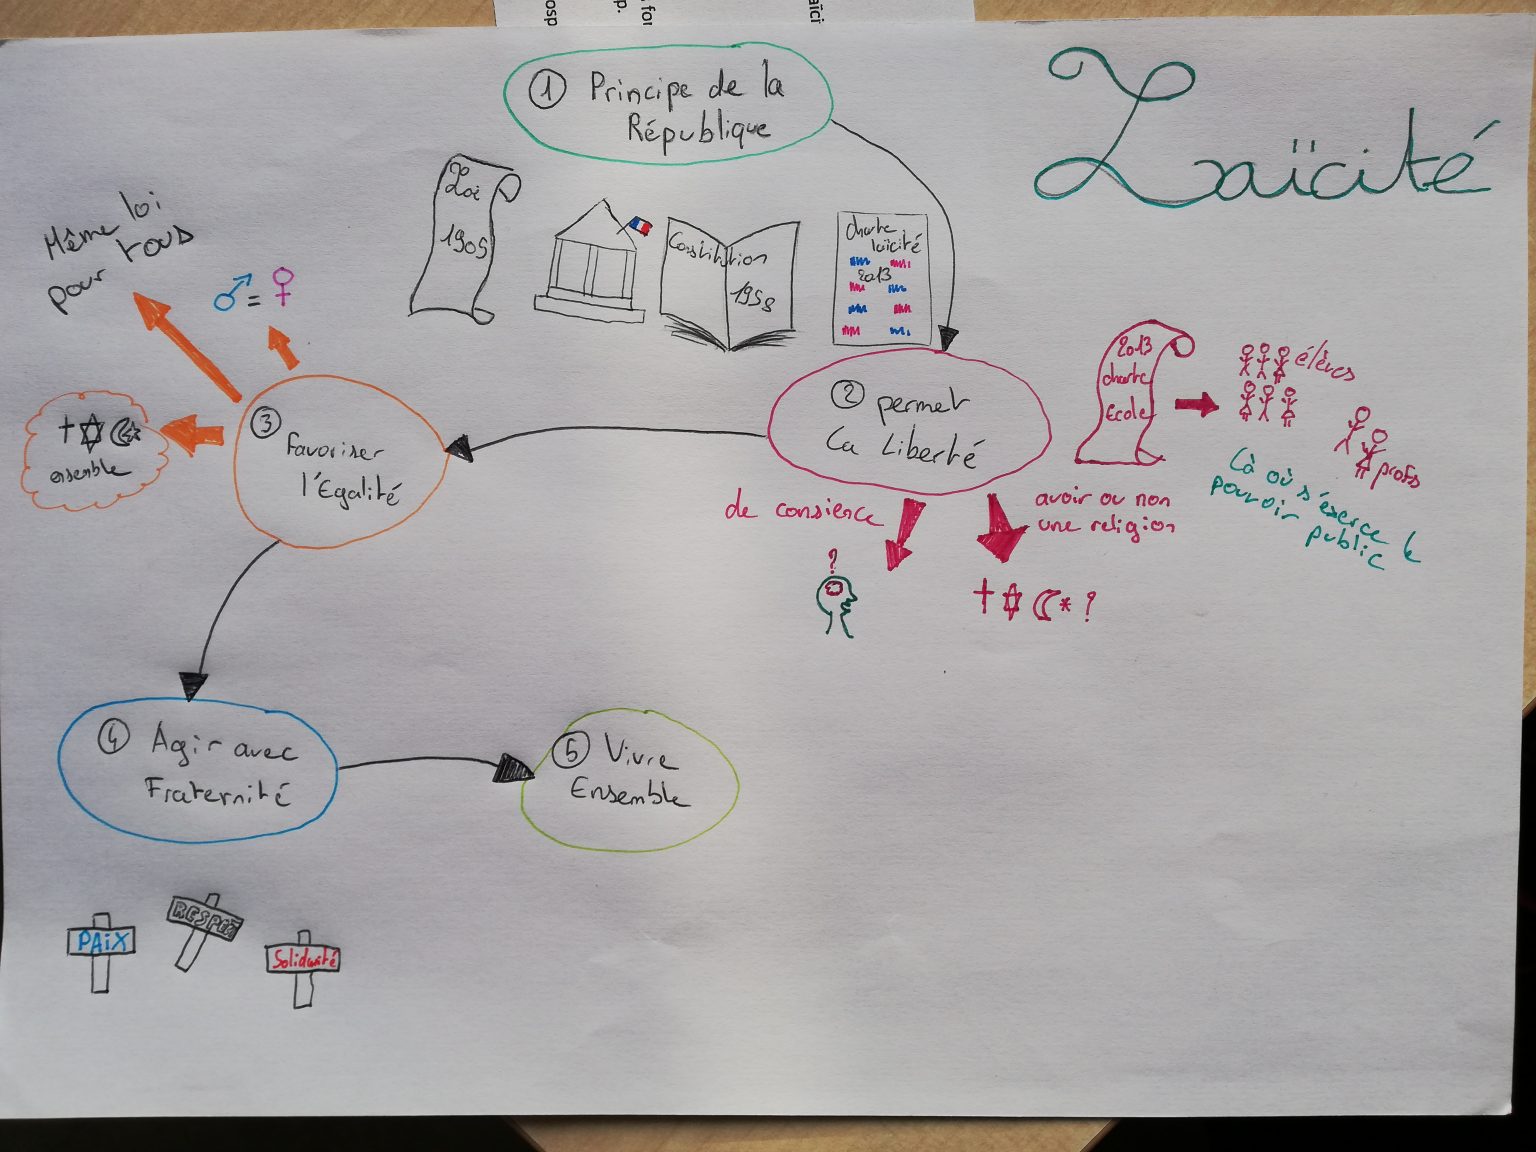 Laïcité
1 Principe de la
République
Loi
1905
Constitution
1958
charte
laïcité
2013
2 permet
La Liberté
2013
charte
Ecole
élèves
profs
Là où s'exerce le
pouvoir public
de consience
?
avoir ou non
une religion
?
3
Favoriser
l'Egalité
Même loi
pour tous
=
ensemble
4 Agir avec
Fraternité
PAiX
RESPECT
Solidarité
5 Vivre
Ensemble
osp
p.
for
aïci